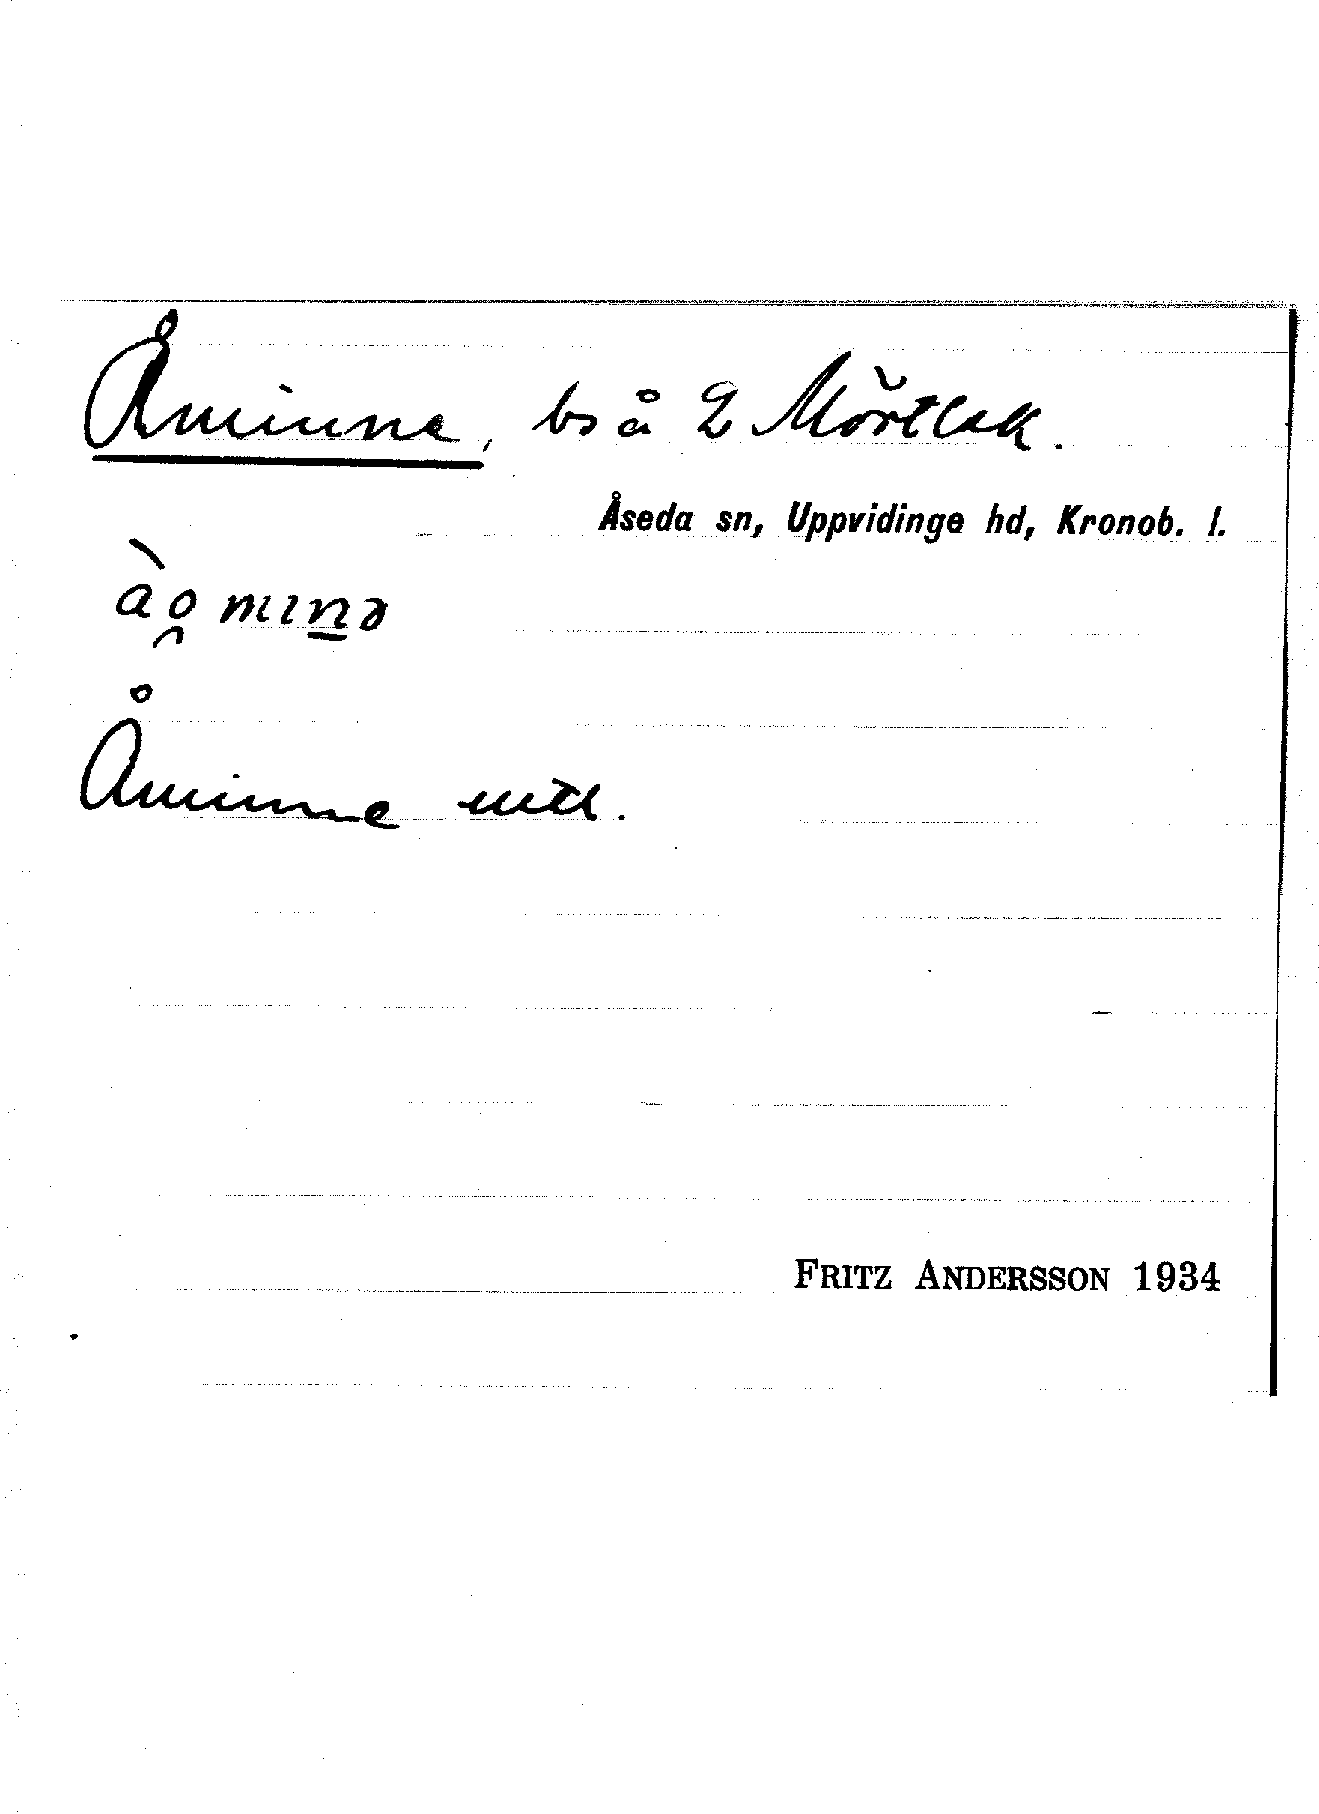 Åminne, bs å 2 Mörtlek.
Åseda sn, Uppvidinge hd, Kronob. l.
ào̯ mɩn̲ə
Åminne mtl.
FRITZ ANDERSSON 1934